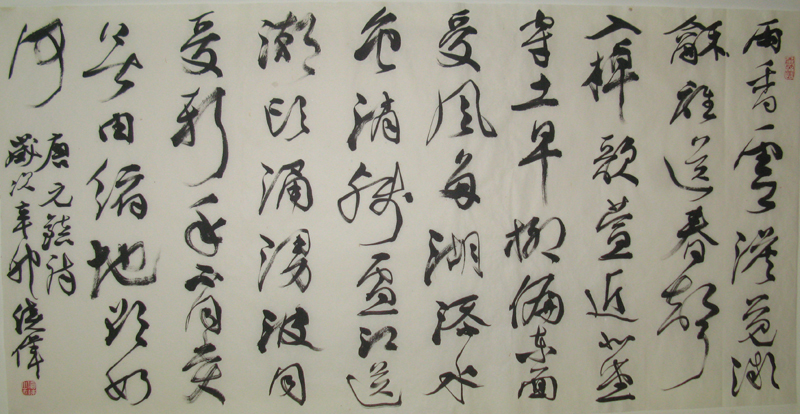 雨香雲淡覺微
龢誰送春聲
入棹歌萱近北堂
穿土早柳偏東面
受風多湖添水
色消殘雪江送
潮頭湧漫波同
受新年不同賞
無由縮地欲如
何
唐元稹詩
歲次辛卯 偉